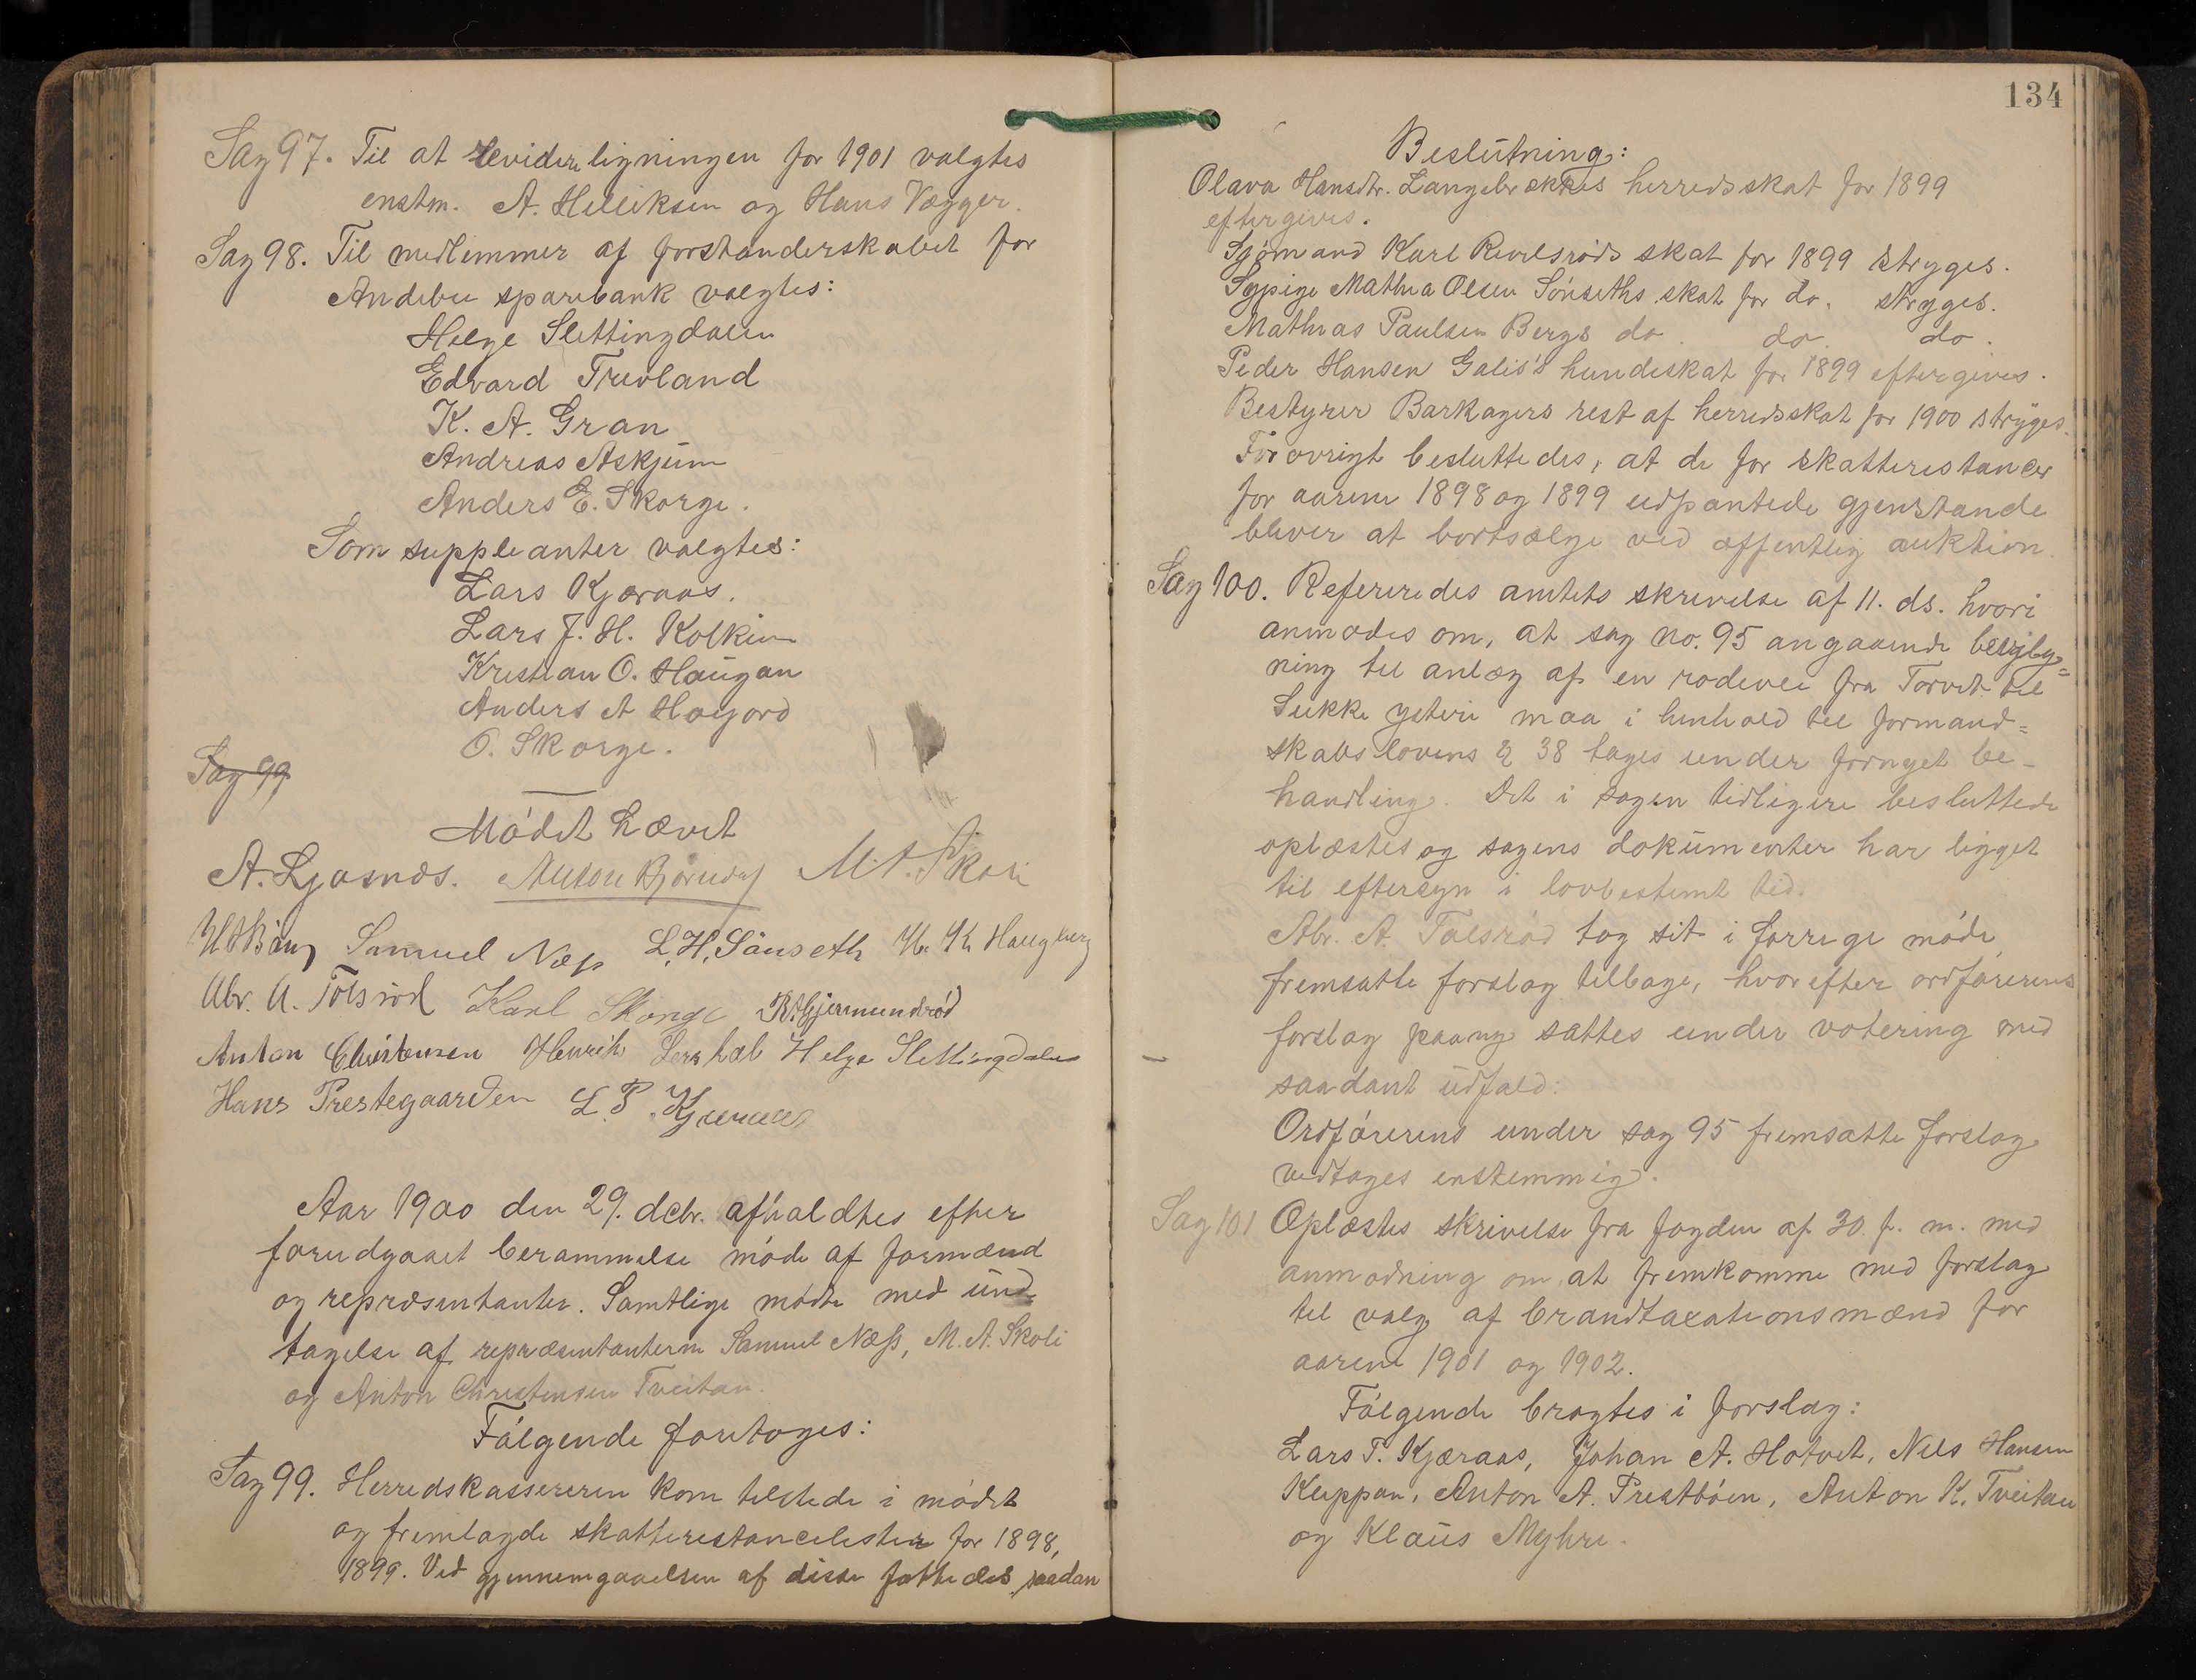 Sag 97. Til at revidere ligningen for 1901 valgtes
enstm. A. Helliksen og Hans Vegger.
Sag 98. Til medlemmer af forstanderskabet for
Andebu sparebank valgtes:
Helge Slettingdalen
Edvard Trevland
K. A. Gran
Andreas Askjum
Anders E. Skorge.
Som suppleanter valgtes:
Lars Kjæraas.
Lars J. H. Kolkin
Kristian O. Haugan
Anders A Høgjord
O. Skorge.
Sag 99
Mødet hævet
A. Ljøsnæs. Anton Bjørndal M. A. Skoli
Samuel Næss L. H. Sønseth H. K. Haugberg
Abr. A. Tolsrød Karl Skorge K. Gjermundrød
Anton Christensen Henrik Lerskal Helge Slettingdalen
Hans Prestegaarden L. P. Kjæraas
Aar 1900 den 29. debr. afholdtes efter
forudgaaet berammelse møde af formænd
og repræsentanter. Samtlige mødte med und-
tagelse af repræsentanterne Samuel Næss, M. A. Skoli
og Anton Christensen Tveitan.
Følgende foretoges:
Sag 99. Herredskassereren kom tilstede i mødet
og fremlagde skatterestancelister for 1898,
1899. Ved gjennemgaaelsen af disse fattedes saadan
134
Beslutning:
Olava Hansdtr. Langebrækkes herredsskat for 1899
eftergives.
Sjømand Karl Revelsrøds skat for 1899 stryges.
Sypige Mathea Olsen Sønseths skat for do. stryges.
Mathias Paulsen Bergs do. do. do.
Peder Hansen Galis's hundeskat for 1899 eftergives.
Bestyrer Barkagers rest af herredsskat for 1900 stryges.
Forøvrigt besluttedes, at de for skatterestancer
for aarene 1898 og 1899 udpantede gjenstande
bliver at bortsælge ved offentlig auktion.
Sag 100. Refereredes amtets skrivelse af 11. ds. hvori
anmodes om, at sag no. 95 angaaende bevilg-
ning til anlæg af en rodevei fra Torvet til
Sukke ysteri maa i henhold til formand=
skabslovens § 38 tages under fornyet be-
handling. Det i sagen tidligere besluttede
oplæstes og sagens dokumenter har ligget
til eftersyn i lovbestemt tid.
Abr. A. Tolsrød tog sit i forrige møde
fremsatte forslag tilbage, hvorefter ordførerens
forslag paany sattes under votering med
saadant udfald:
Ordførerens under sag 95 fremsatte forslag
vedtages enstemmig.
Sag 101 Oplæstes skrivelse fra fogden af 30. f. m. med
anmodning om at fremkomme med forslag
til valg af brandtaxationsmænd for
aarene 1901 og 1902.
Følgende bragtes i forslag:
Lars P. Kjæraas, Johan A. Hotvet, Nils Hansen
Kleppan, Anton A. Prestbøen, Anton K. Tveitan
og Klaus Myhre.